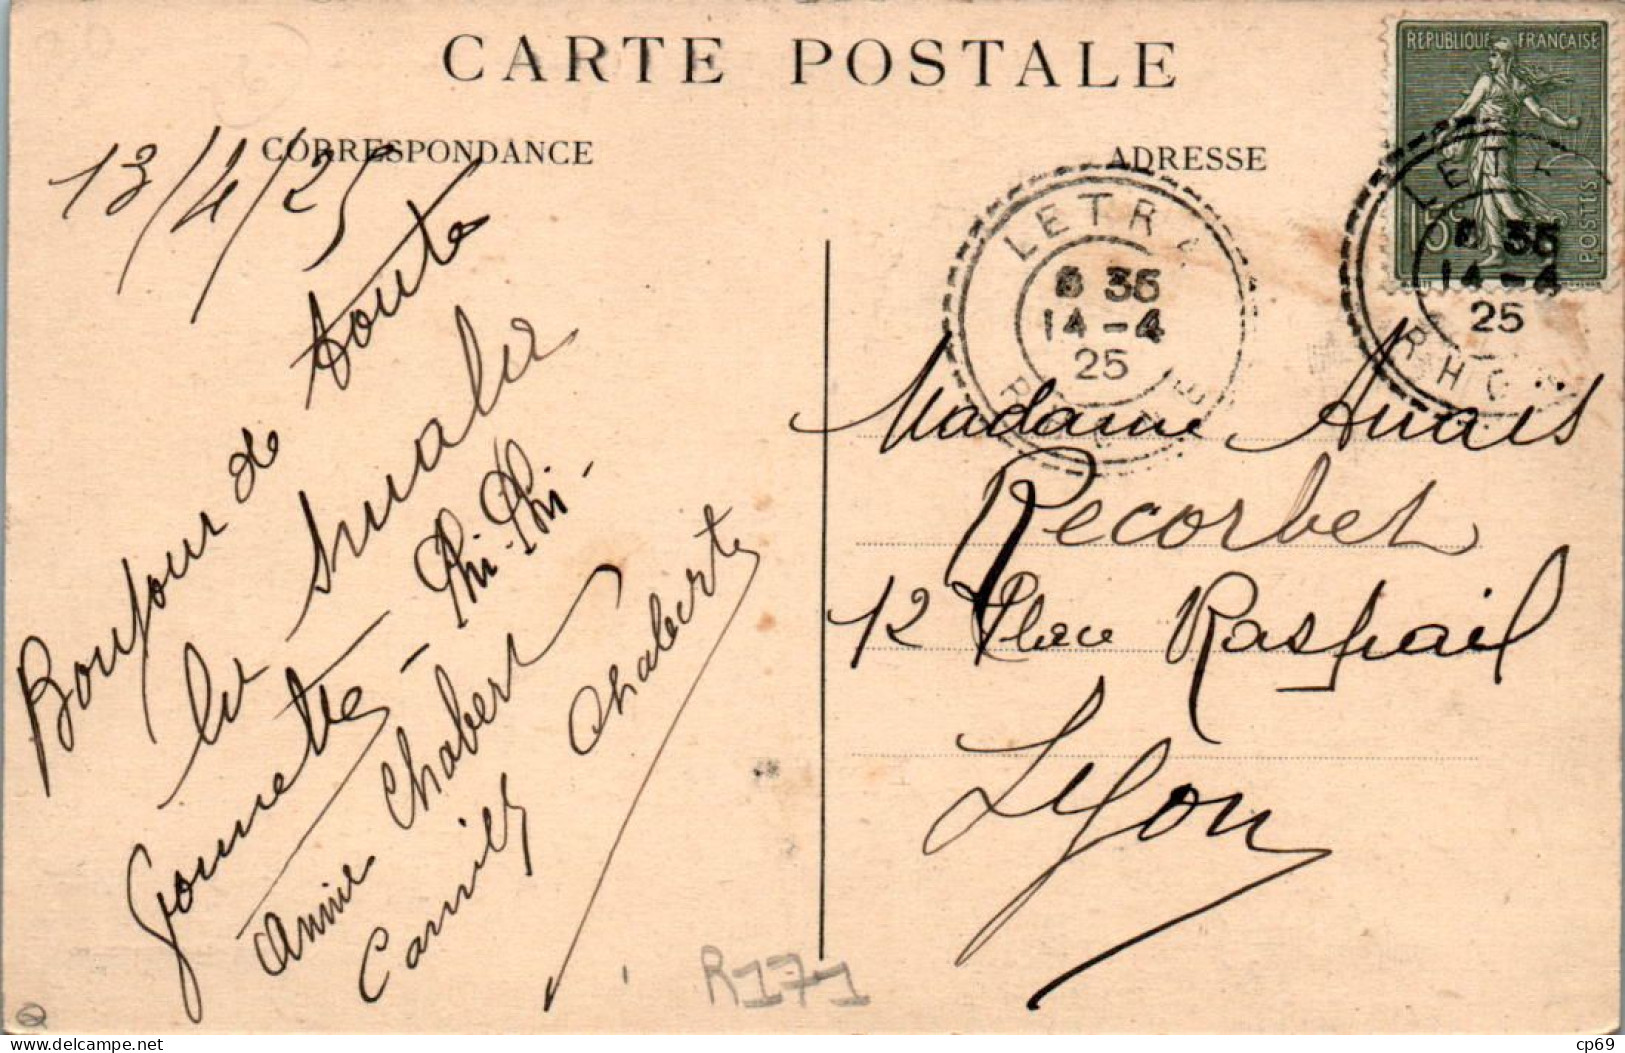 CARTE POSTALE
CORRESPONDANCE
ADRESSE
REPUBLIQUE FRANÇAISE
15c
POSTES
LETRA
8 35
14-4
25
RHONE
LETRA
8 35
14-4
25
RHONE
13/4/25
Bonjour de toute
la smala
Gonnettes - Phi-Phi -
Annie Chabert
Camille Chabert
Madame Anaïs
Recorbet
12 Place Raspail
Lyon
R171
delcampe.net
cp69